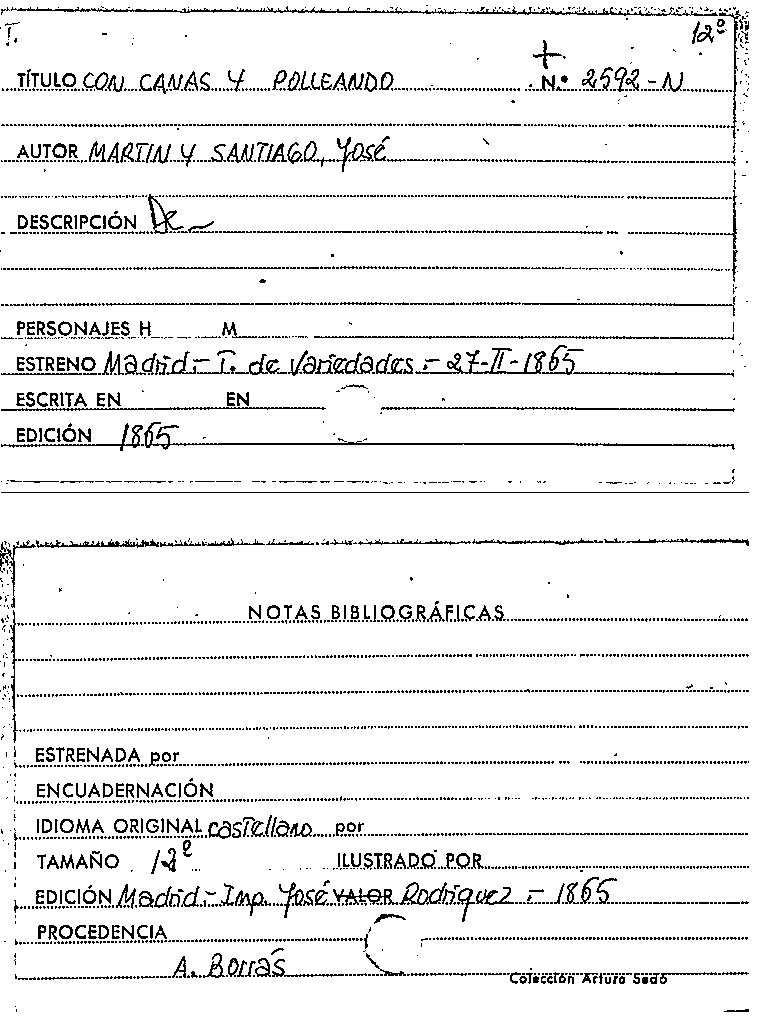 T. 12º
+
TÍTULO CON CANAS Y POLLEANDO N.º 2592-N
AUTOR MARTIN Y SANTIAGO, José
DESCRIPCIÓN
PERSONAJES H M
ESTRENO Madrid.- T. de Variedades.- 27-II-1865
ESCRITA EN EN
EDICIÓN 1865
NOTAS BIBLIOGRÁFICAS
ESTRENADA por
ENCUADERNACIÓN
IDIOMA ORIGINAL castellano por
TAMAÑO 12º ILUSTRADO POR
EDICIÓN Madrid.- Imp. José VALOR Rodriguez.- 1865
PROCEDENCIA
A. Borrás
Colección Arturo Sedó